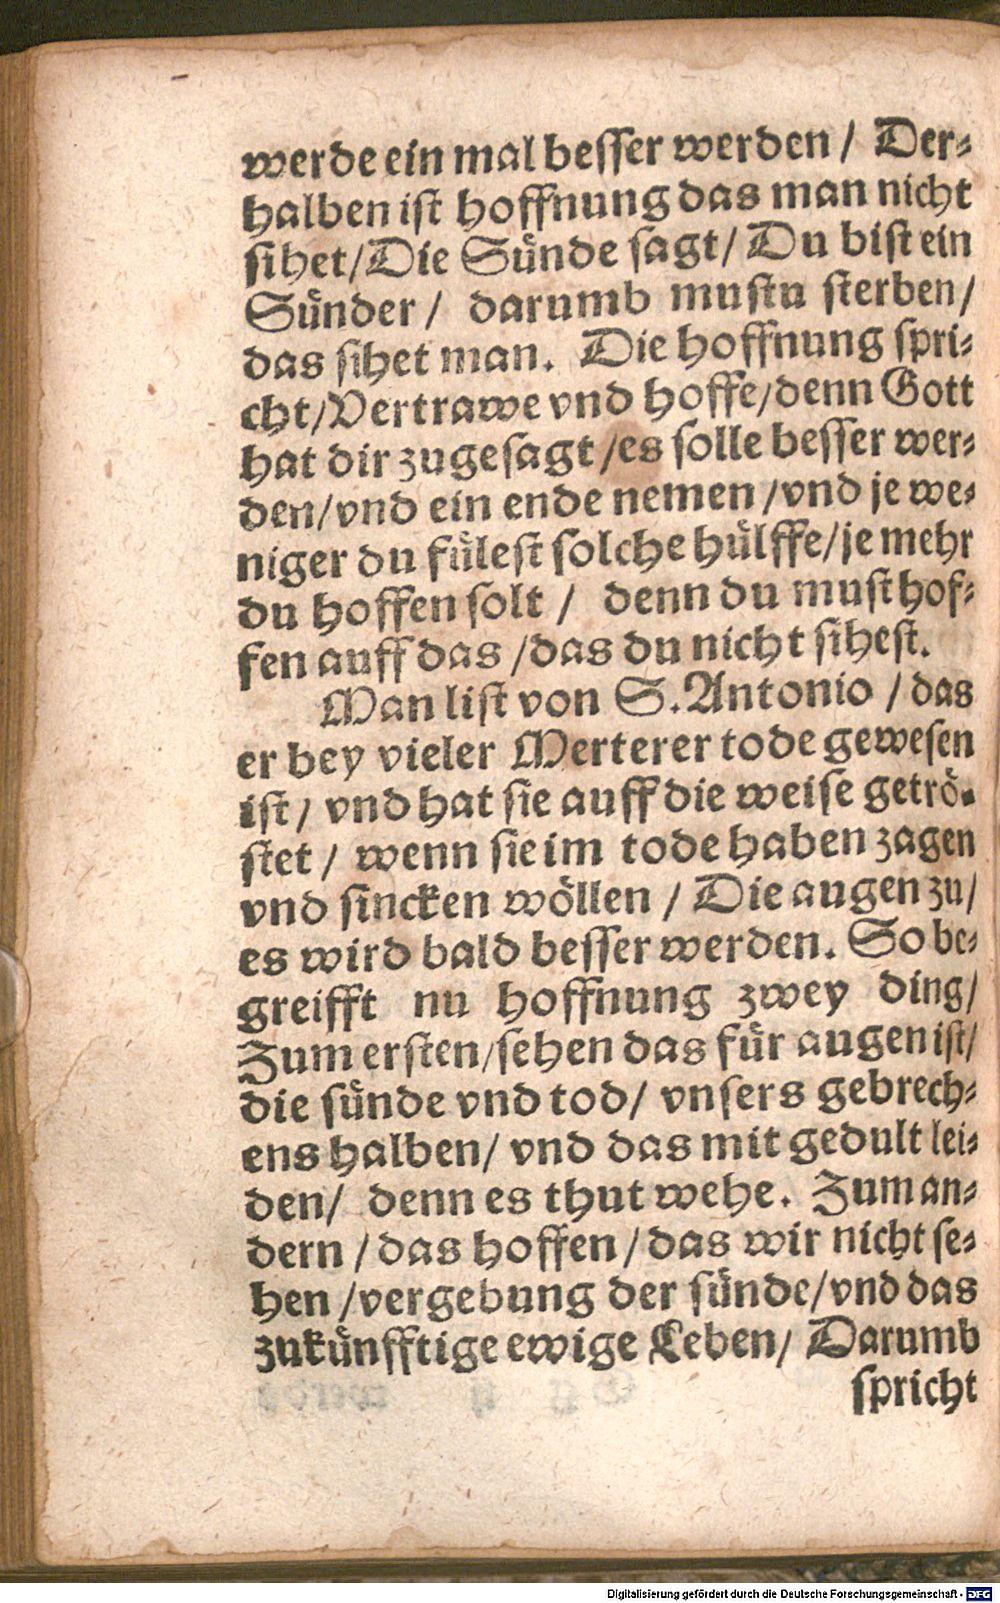 werde ein mal beſſer werden / Der⸗
halben iſt hoffnung das man nicht
ſihet / Die Sünde ſagt / Du biſt ein
Sünder / darumb muſtu ſterben /
das ſihet man. Die hoffnung ſpri⸗
cht / Vertrawe vnd hoffe / denn Gott
hat dir zugeſagt / es ſolle beſſer wer⸗
den / vnd ein ende nemen / vnd je we⸗
niger du füleſt ſolche hülffe / je mehr
du hoffen ſolt / denn du muſt hof⸗
fen auff das / das du nicht ſiheſt.
Man liſt von S. Antonio / das
er bey vieler Merterer tode geweſen
iſt / vnd hat ſie auff die weiſe getrö⸗
ſtet / wenn ſie im tode haben zagen
vnd ſincken wöllen / Die augen zu /
es wird bald beſſer werden. So be⸗
greifft nu hoffnung zwey ding /
Zum erſten / ſehen das für augen iſt /
die ſünde vnd tod / vnſers gebrech⸗
ens halben / vnd das mit gedult lei⸗
den / denn es thut wehe. Zum an⸗
dern / das hoffen / das wir nicht ſe⸗
hen / vergebung der ſünde / vnd das
zukünfftige ewige Leben / Darumb
ſpricht
Digitalisierung gefördert durch die Deutsche Forschungsgemeinschaft - DFG